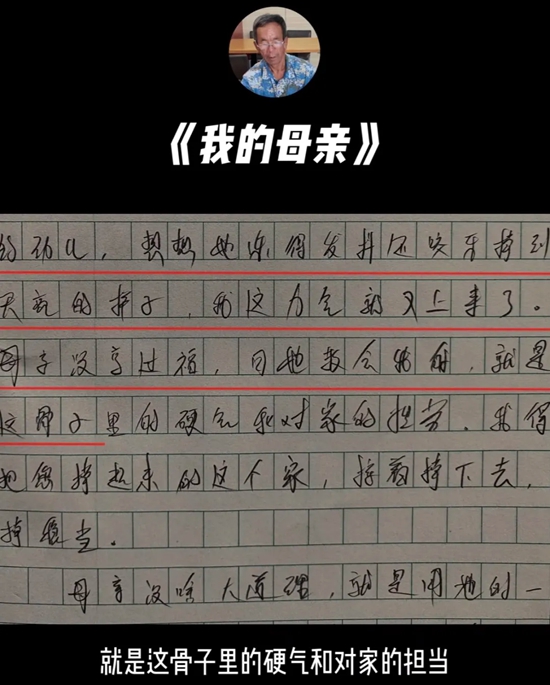 《我的母亲》
的劲儿，想想她疼得发抖还咬牙撑到
天亮的样子，我这力气就又上来了。
母亲没享过福，可她教会我的，就是
这骨子里的硬气和对家的担当。我得
把她撑起来的这个家，接着撑下去，
撑稳当。
母亲没啥大道理，就是用她的一
就是这骨子里的硬气和对家的担当